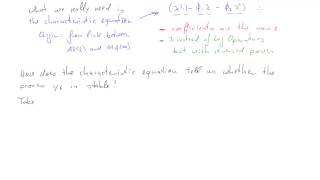 What we really need is
the characteristic equation
Origin: from link between
AR(2) and MA(∞)
(x² - ϕ₁x - ϕ₂x⁰)
- coefficients are the same
- x instead of Lag Operators
but with reversed powers
How does the characteristic equation tell us whether the
process yₜ is stable?
Take